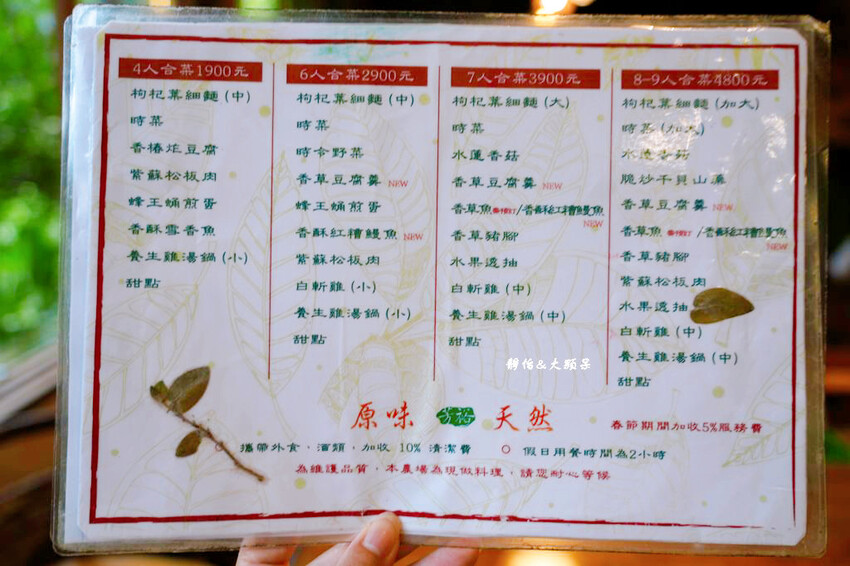 4人合菜1900元
枸杞葉細麵(中)
時菜
香椿炸豆腐
紫蘇松板肉
蜂王蛹煎蛋
香酥雪香魚
養生雞湯鍋(小)
甜點
6人合菜2900元
枸杞葉細麵(中)
時菜
時令野菜
香草豆腐羹 NEW
蜂王蛹煎蛋
香酥紅糟鰻魚 NEW
紫蘇松板肉
白斬雞(小)
養生雞湯鍋(小)
甜點
7人合菜3900元
枸杞葉細麵(大)
時菜
水蓮香菇
香草豆腐羹 NEW
香草魚 /香酥紅糟鰻魚
NEW
香草豬腳
水果透抽
白斬雞(中)
養生雞湯鍋(中)
甜點
8-9人合菜4800元
枸杞葉細麵(加大)
時菜(加大)
水蓮香菇
脆炒干貝山藥
香草豆腐羹 NEW
香草魚 /香酥紅糟鰻魚
NEW
香草豬腳
紫蘇松板肉
水果透抽
白斬雞(中)
養生雞湯鍋(中)
甜點
靜怡&大顆呆
原味 天然
春節期間加收5%服務費
攜帶外食、酒類,加收 10% 清潔費 ○ 假日用餐時間為2小時
為維護品質,本農場為現做料理,請您耐心等候